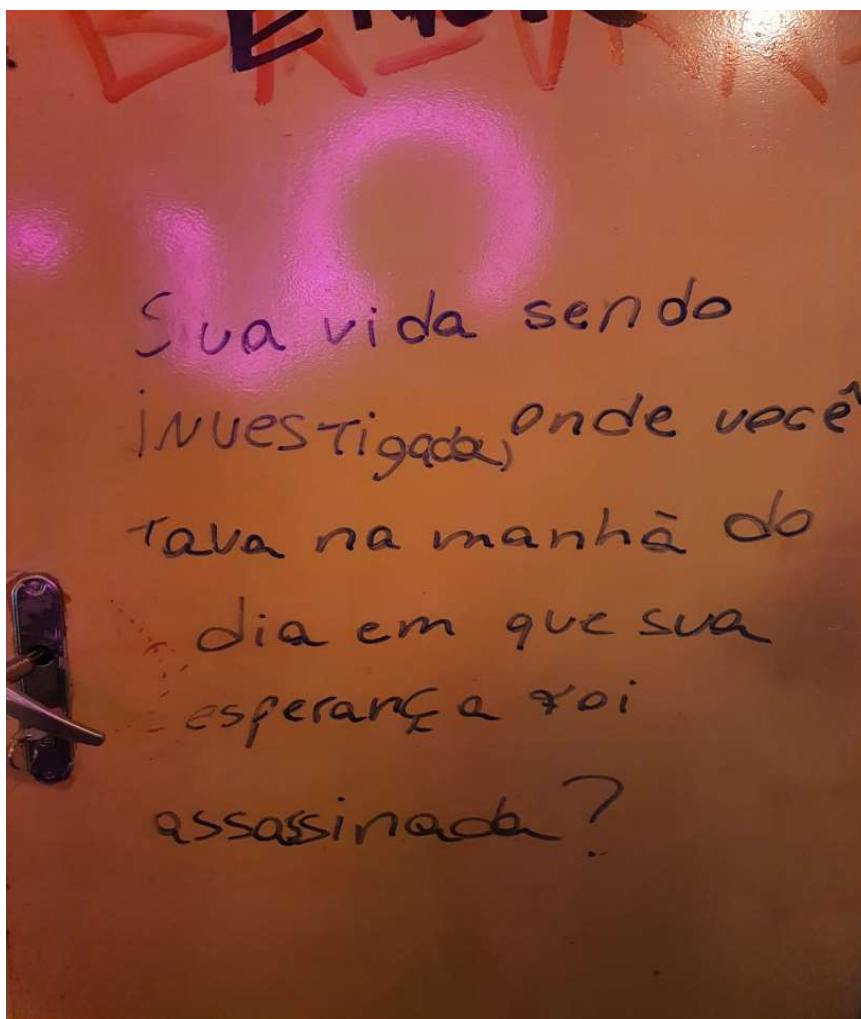 Sua vida sendo
investigada, onde você
tava na manhã do
dia em que sua
esperança foi
assassinada?